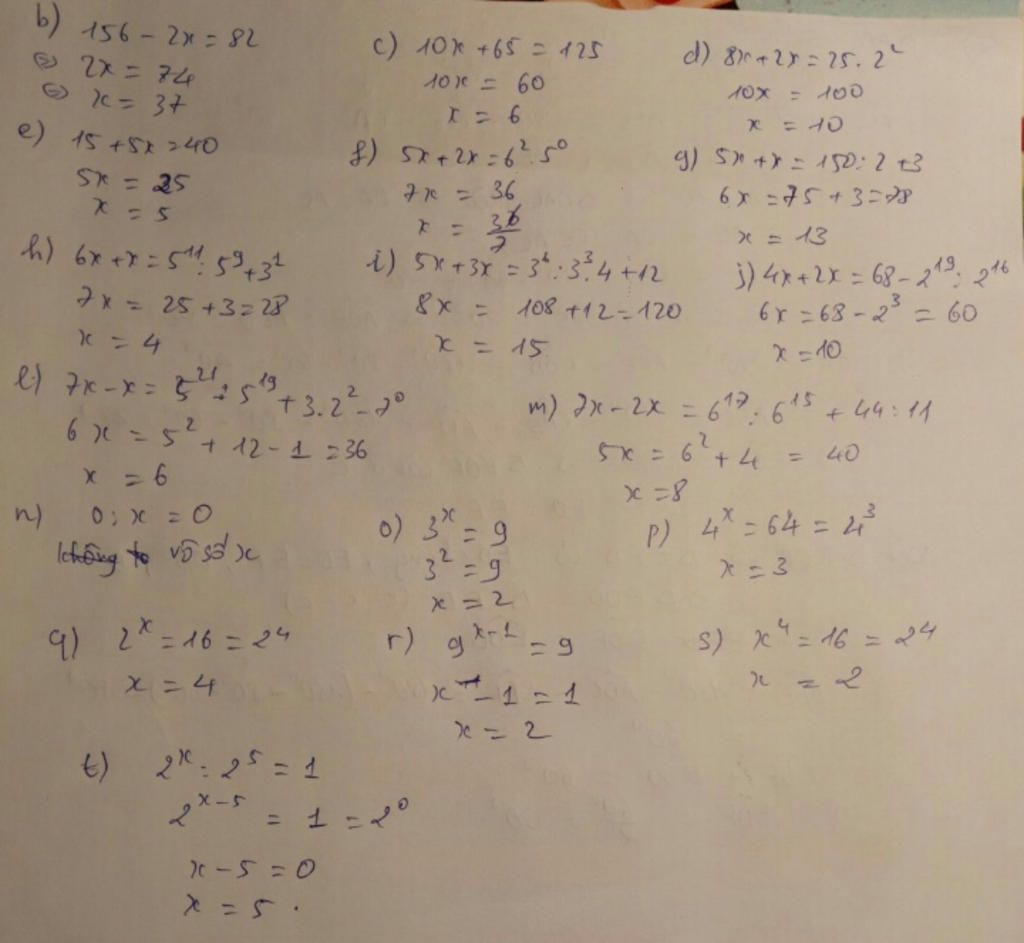 b) 156 - 2x = 82
⇔ 2x = 74
⇔ x = 37
c) 10x + 65 = 125
10x = 60
x = 6
d) 8x + 2x = 25 . 2²
10x = 100
x = 10
e) 15 + 5x = 40
5x = 25
x = 5
f) 5x + 2x = 6² . 5⁰
7x = 36
x = 36/7
g) 5x + x = 150 : 2 + 3
6x = 75 + 3 = 78
x = 13
h) 6x + x = 5¹¹ : 5⁹ + 3¹
7x = 25 + 3 = 28
x = 4
i) 5x + 3x = 3⁶ : 3³ . 4 + 12
8x = 108 + 12 = 120
x = 15
j) 4x + 2x = 68 - 2¹⁹ : 2¹⁶
6x = 68 - 2³ = 60
x = 10
l) 7x - x = 5²¹ : 5¹⁹ + 3 . 2² - 7⁰
6x = 5² + 12 - 1 = 36
x = 6
m) 7x - 2x = 6¹⁷ : 6¹⁵ + 44 : 11
5x = 6² + 4 = 40
x = 8
n) 0 : x = 0
không vô số x
o) 3ˣ = 9
3² = 9
x = 2
p) 4ˣ = 64 = 4³
x = 3
q) 2ˣ = 16 = 2⁴
x = 4
r) 9ˣ⁻¹ = 9
x - 1 = 1
x = 2
s) x⁴ = 16 = 2⁴
x = 2
t) 2ˣ : 2⁵ = 1
2ˣ⁻⁵ = 1 = 2⁰
x - 5 = 0
x = 5 .